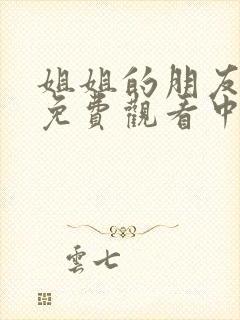 姐姐的朋友
免費觀看中
雲七